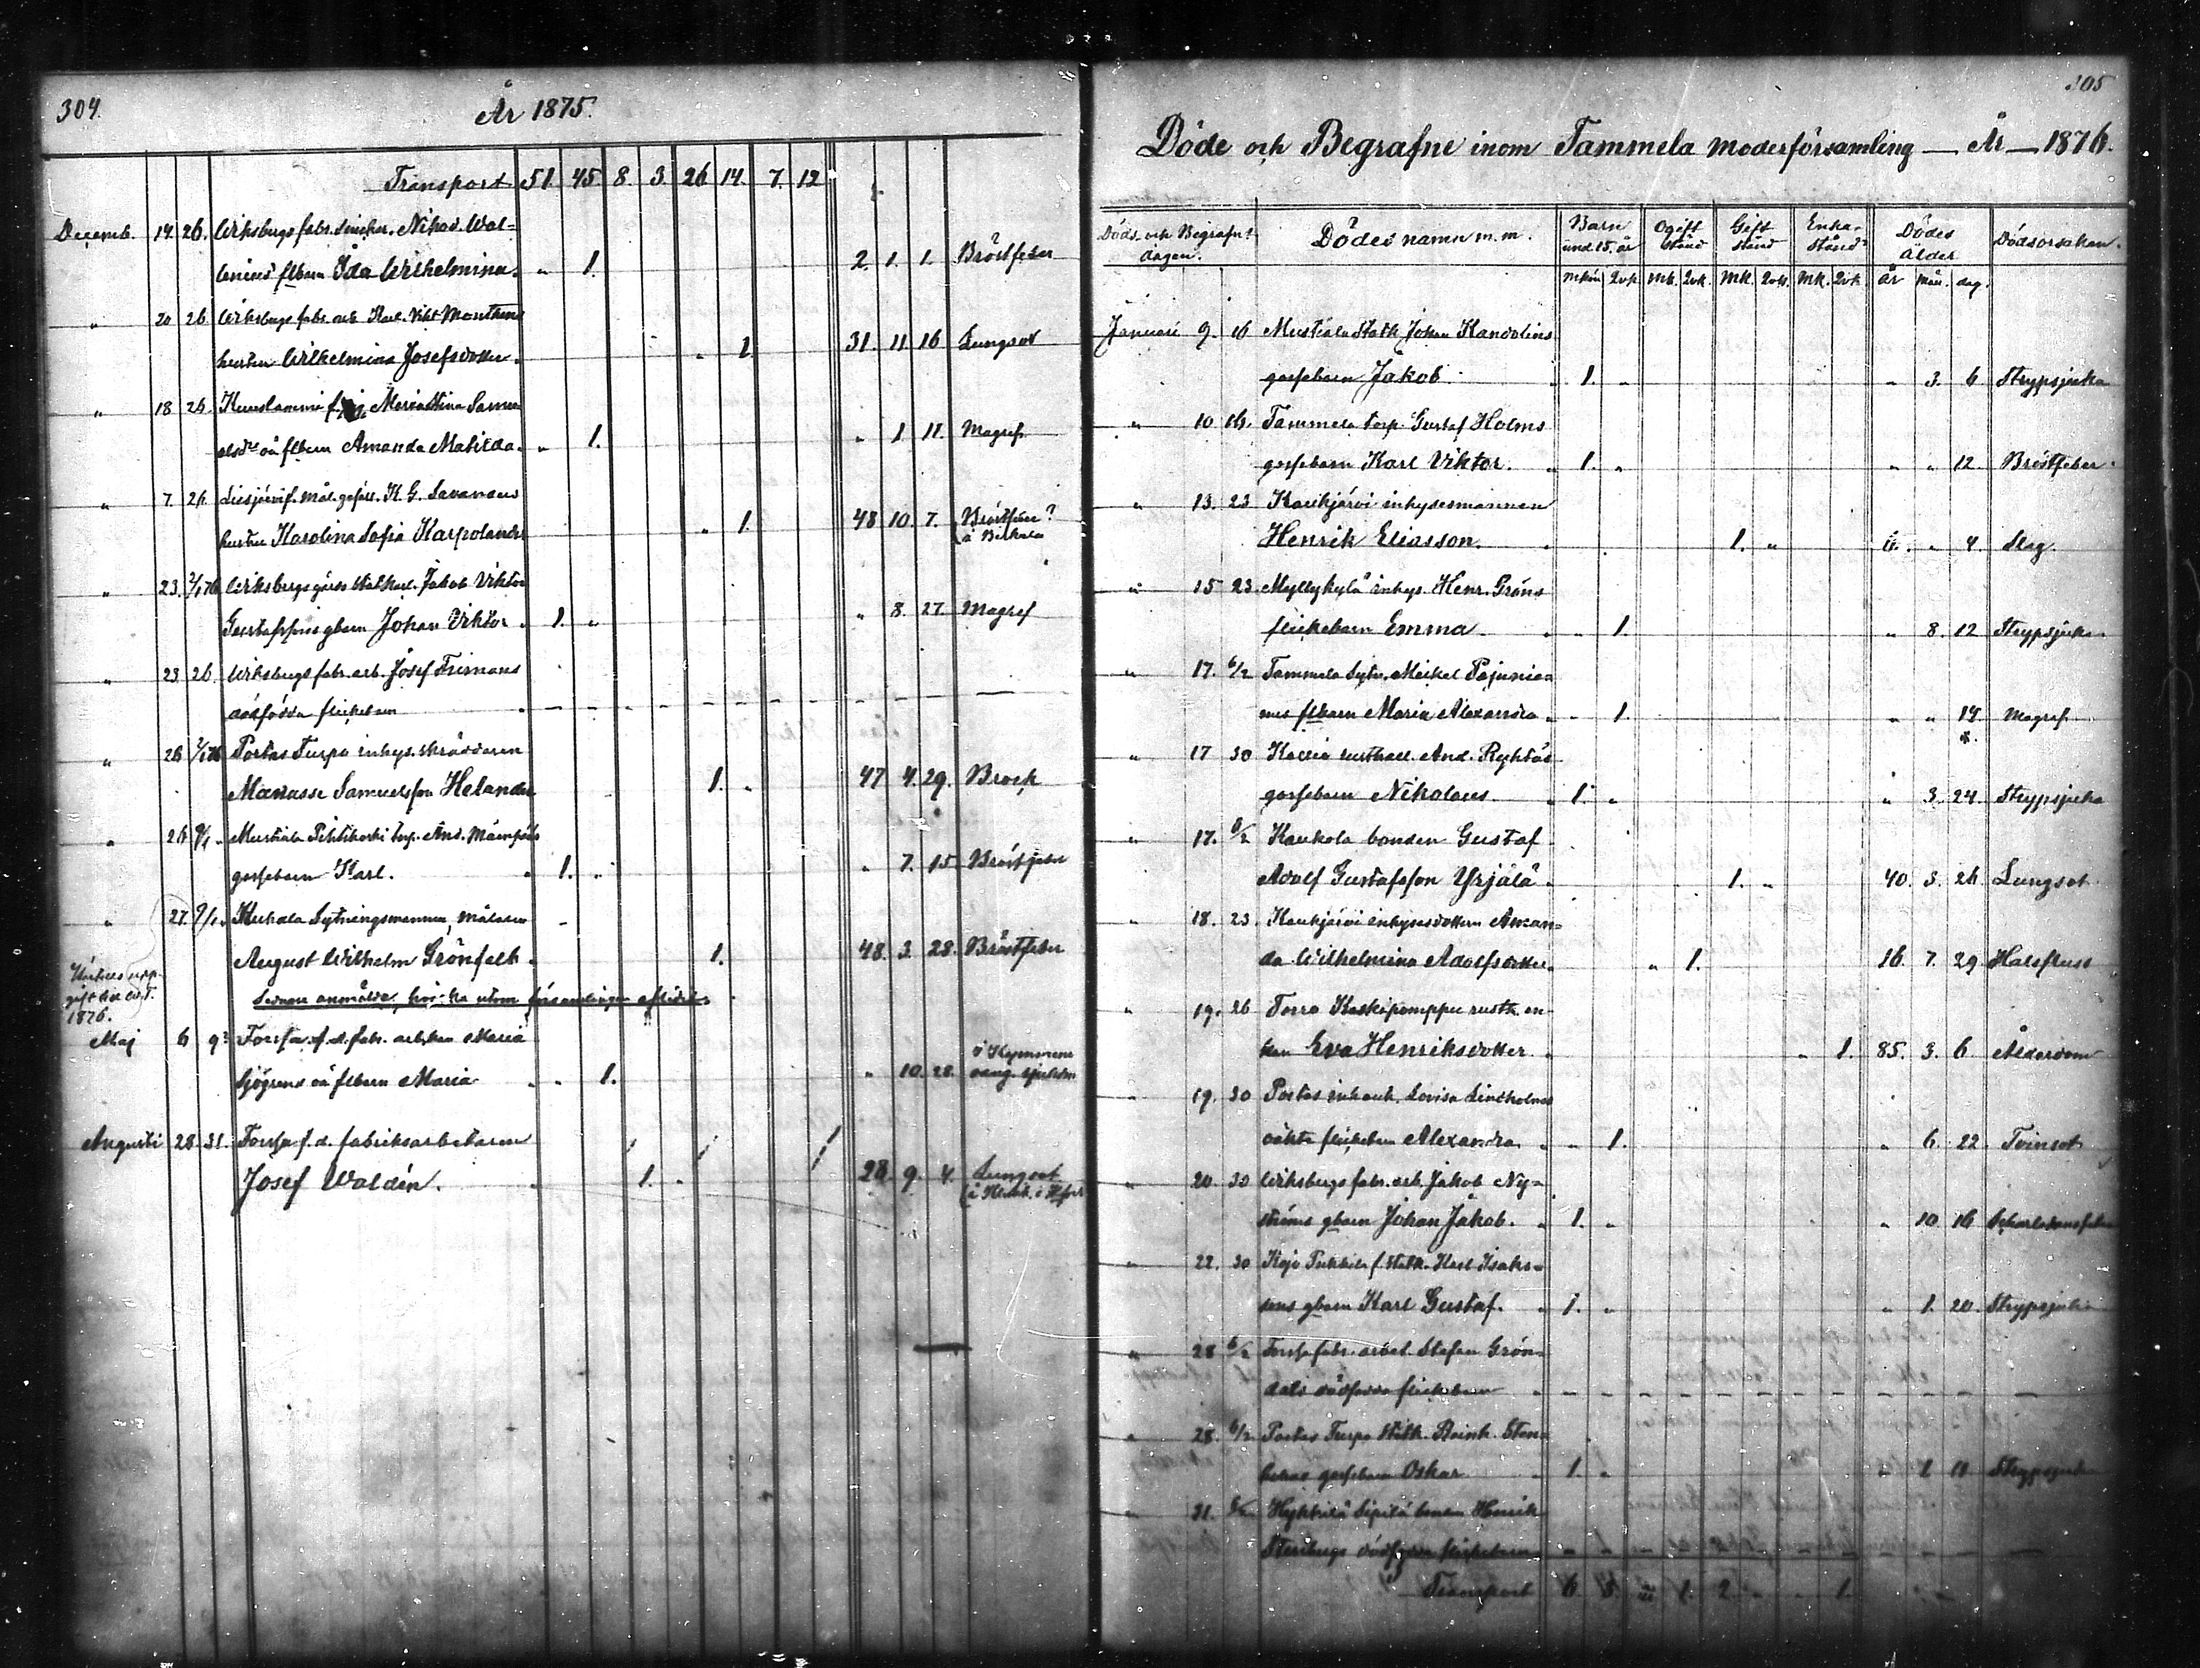 304.
År 1875.
Transport 51. 45. 8. 3. 26 14. 7. 12
Decemb. 14. 26. Wiksbergs fabr. Nikod. Wal=
lenius flbarn Ida Wilhelmina. " 1. 2. 1. 1. Bröstfeber
" 20 26 Wiksbergs fabr. arb. Karl. Vikt
hustru Wilhelmina Josefsdotter. " 1. 31. 11. 16 Lungsot
" 18 26. Maria Stina Samu
elsdr oä flbarn Amanda Matilda. " 1. " 1 11. Magref
" 7. 26. K. G.
hustru Karolina Sofia " 1. 48. 10. 7. ?
" 23. 2/1 76 Wiksbergs Jakob Viktor
Gustafssons gbarn Johan Viktor. 1. " " 8. 27. Magref
" 23. 26. Wiksbergs fabr. arb. Josef Frimans
dödfödda flickebarn
" 26 2/1 76 Portas Turpo inhys. skräddaren
Manasse Samuelsson Helander 1. " 47 4. 29. Brock
" 26 9/1 " Mustiala torp. And.
gossebarn Karl. 1. " " 7. 15 Bröstfeber
" 27. 9/1 Sytningsmannen, målaren
August Wilhelm Grönfelt. 1. 48. 3. 28. Bröstfeber
1876.
Maj 6 9 Forssa f. d. fabr. arb. Maria
Sjögrens oä flbarn Maria " " 1. " 10. 28.
Augusti 28. 31. Forssa f. d. fabriksarbetaren
Josef Waldén. 1. " 28. 9. 4. Lungsot
305
Döde och Begrafne inom Tammela moderförsamling — År — 1876.
Döds. och Begrafn:s dagen. Dödes namn m. m. Barn und. 15. år Ogift stånd Gift stånd Enke-stånd Dödes ålder Dödsorsaken.
mkön qvk mk. qvk. mk. qvk. mk. qvk. år mån. dag.
Januari 9. 16 Mustiala Statk. Johan Kandolins
gossebarn Jakob. " 1. " " 3. 6 Strypsjuka
" 10 16. Tammela torp. Gustaf Holms
gossebarn Karl Viktor. " 1. " " " 12. Bröstfeber.
" 13. 23 Kaukjärvi inhysesmannen
Henrik Eliasson. 1. " " 4. Slag.
" 15 23. Myllykylä inhys. Henr. Gröns
flickebarn Emma. " " 1. " 8. 12 Strypsjuka
" 17. 6/2 Tammela Sytn. Mickel Pajunie=
mis flbarn Maria Alexandra. " " 1. " " 14 Magref.
" 17 30 Kallia rusthåll. And.
gossebarn Nikolaus. " 1. " " 3. 24. Strypsjuka
" 17. 6/2 Kaukola bonden Gustaf
Adolf Gustafsson Yrjälä. 1. " 40. 3. 26 Lungsot.
" 18. 23. Kaukjärvi inhysesdottern Aman=
da Wilhelmina Adolfsdotter. " 1. 16. 7. 29 Halsfluss
" 19. 26 Torro rusth. en=
kan Eva Henriksdotter " 1. 85. 3. 6. Ålderdom
" 19. 30 Portas Lovisa Lindholms
oäkta flickebarn Alexandra. " " 1. " 6. 22 Tvinsot
" 20. 30 Wiksbergs fabr. arb. Jakob Ny=
ströms gbarn Johan Jakob. " 1. " " 10. 16
" 22. 30 Kojo f. Statk. Karl Isaks=
sons gbarn Karl Gustaf. " 1. " " 1. 20. Strypsjuka
" 28 6/2 Forssa fabr. arbet. Stefan Grön=
dals dödfödda flickebarn
" 28. 6/2 Portas Turpo Statk.
gossebarn Oskar 1. " " 1 11 Strypsjuka
" 31. Hykkilä Sipilä Henrik
dödfödda flickebarn
Transport 6. 3. " 1. 2. " " 1.